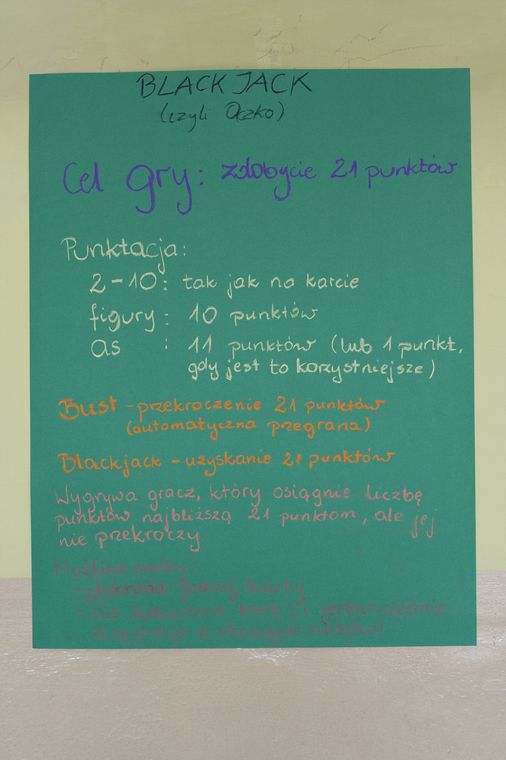 BLACK JACK
(czyli Oczko)
Cel gry: zdobycie 21 punktów
Punktacja:
2-10: tak jak na karcie
figury: 10 punktów
as : 11 punktów (lub 1 punkt,
gdy jest to korzystniejsze)
Bust - przekroczenie 21 punktów
(automatyczna przegrana)
Blackjack - uzyskanie 21 punktów
Wygrywa gracz, który osiągnie liczbę
punktów najbliższą 21 punktom, ale jej
nie przekroczy
Możliwe ruchy:
- dobranie jednej karty
- nie dobieranie kart (i jednocześnie
rezygnacja z dalszych ruchów)